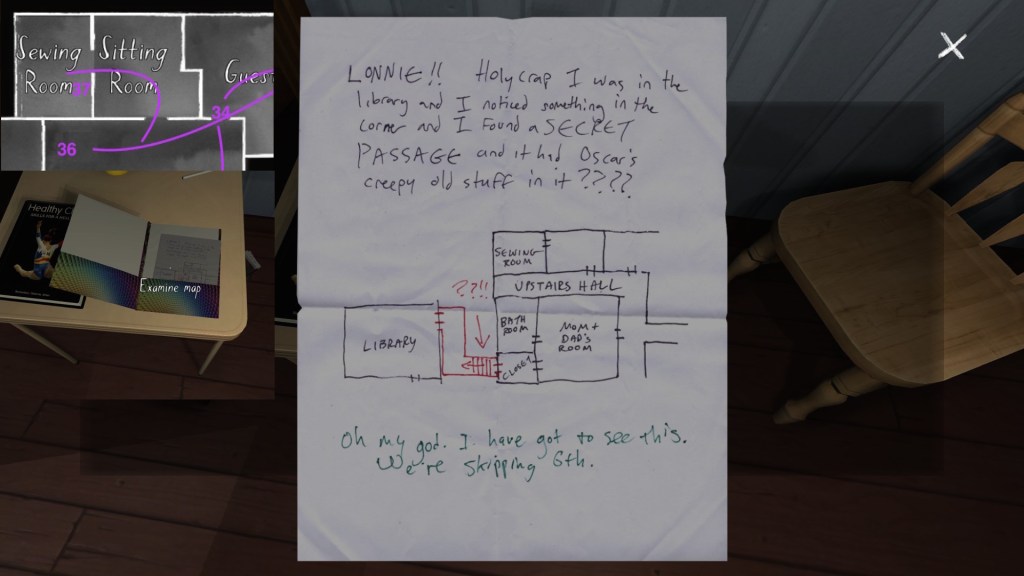 Sewing Room
Sitting Room
Guest
37
34
36
Healthy
Examine map
LONNIE!! Holy crap I was in the
library and I noticed something in the
corner and I found a SECRET
PASSAGE and it had Oscar's
creepy old stuff in it????
SEWING
ROOM
UPSTAIRS HALL
??!!
BATH
ROOM
MOM +
DAD'S
ROOM
LIBRARY
CLOSET
Oh my god. I have got to see this.
We're skipping 6th.